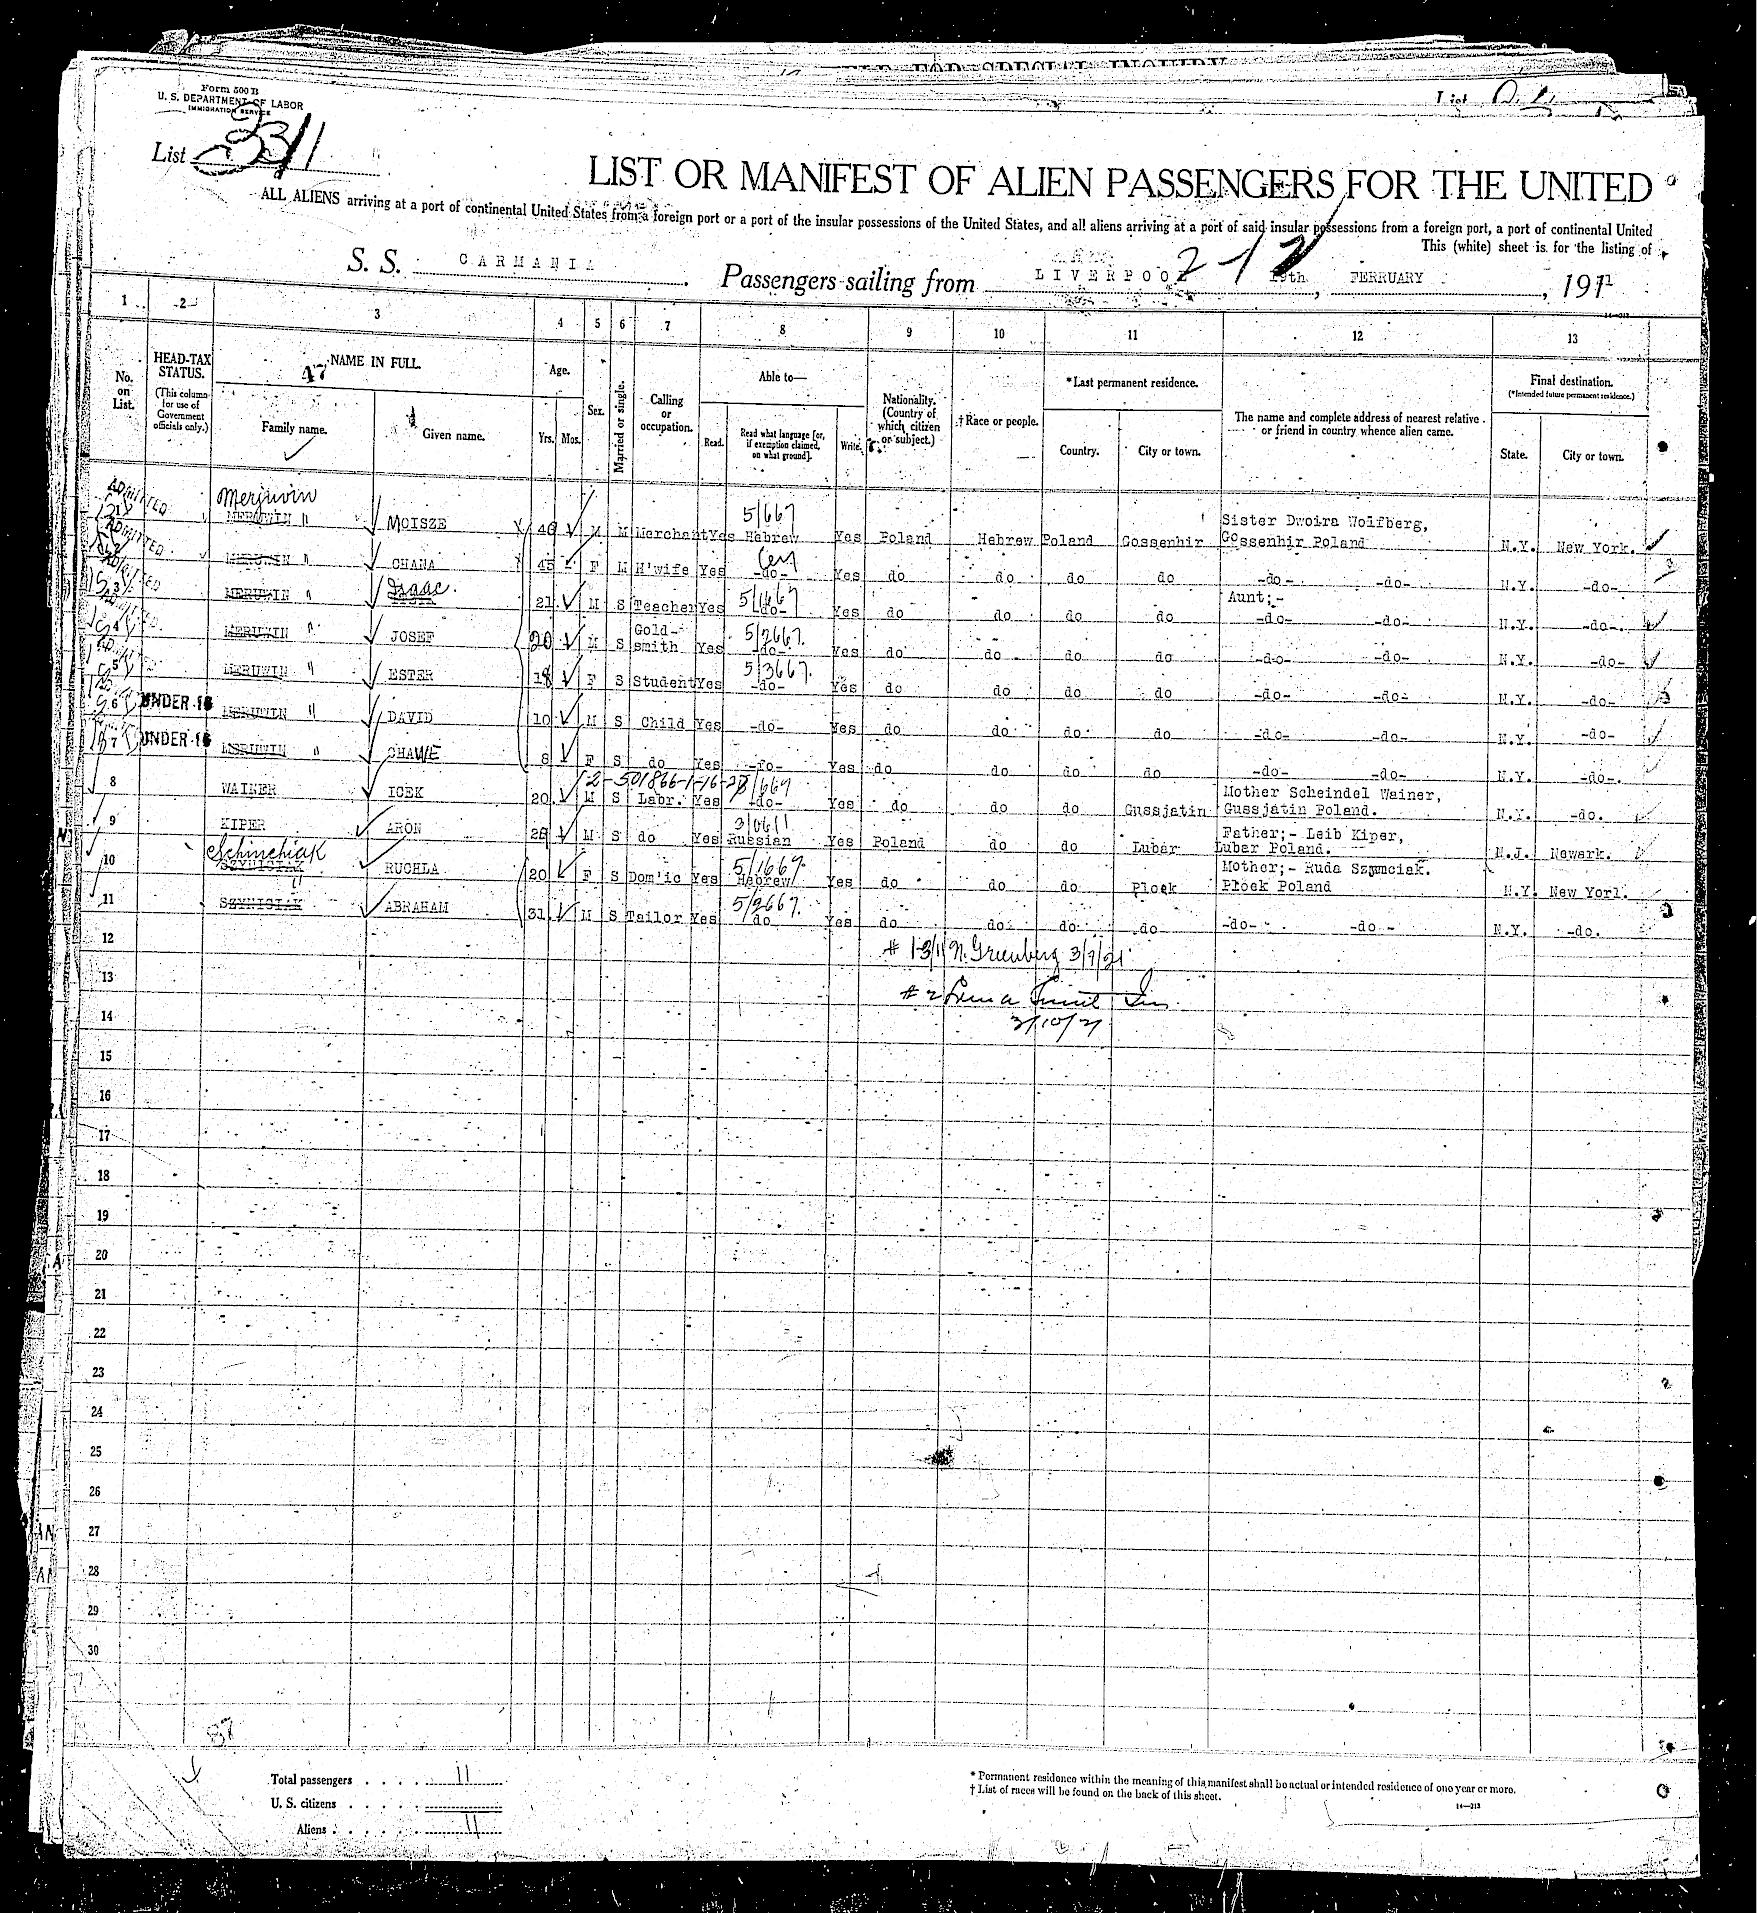 LIST FOR SPECIAL INQUIRY
List
Form 500 B
U. S. DEPARTMENT OF LABOR
IMMIGRATION SERVICE
List 311
LIST OR MANIFEST OF ALIEN PASSENGERS FOR THE UNITED
ALL ALIENS arriving at a port of continental United States from a foreign port or a port of the insular possessions of the United States, and all aliens arriving at a port of said insular possessions from a foreign port, a port of continental United
This (white) sheet is for the listing of
S. S. CARMANIA. Passengers sailing from LIVERPOOL, 19th, FEBRUARY, 1921
1 2 3 4 5 6 7 8 9 10 11 12 13
No. on List.
HEAD-TAX STATUS.
(This column for use of Government officials only.)
47
NAME IN FULL.
Family name.
Given name.
Age.
Yrs. Mos.
Sex.
Married or single.
Calling or occupation.
Able to—
Read.
Read what language [or, if exemption claimed, on what ground].
Write.
Nationality. (Country of which citizen or subject.)
† Race or people.
*Last permanent residence.
Country.
City or town.
The name and complete address of nearest relative or friend in country whence alien came.
Final destination.
(*Intended future permanent residence.)
State.
City or town.
ADMITTED Merjuvin 5/667 Sister Dwoira Wolfberg,
1 MERUWIN " MOISZE 46 M M Merchant Yes Hebrew Yes Poland Hebrew Poland Gossenhir Gossenhir Poland N.Y. New York.
ADMITTED 2 MERUWIN " CHANA 45 F M H'wife Yes -do- Yes do do do do -do- -do- N.Y. -do-
3 MERUWIN " Isaac. 21 M S Teacher Yes 5/1667 -do- Yes do do do do Aunt;- -do- -do- N.Y. -do-.
4 MERUWIN " JOSEF 20 M S Gold-smith Yes 5/2667. -do- Yes do do do do -do- -do- N.Y. -do-
5 MERUWIN " ESTER 18 F S Student Yes 5/3667. -do- Yes do do do do -do- -do- N.Y. -do-
6 UNDER 16 MERUWIN " DAVID 10 M S Child Yes -do- Yes do do do do -do- -do- N.Y. -do-
7 UNDER 16 MERUWIN " CHAWE 8 F S do Yes -do- Yes do do do do -do- -do- N.Y. -do-.
2-501866-1-16-28/667 Mother Scheindel Wainer,
8 WAINER ICEK 20 M S Labr. Yes -do- Yes do do do Gussjatin Gussjatin Poland. N.Y. -do.
3/0611 Father;- Leib Kiper,
9 KIPER ARON 28 M S do Yes Russian Yes Poland do do Lubar Lubar Poland. N.J. Newark.
Schinchiak 5/1667. Mother;- Ruda Szymciak.
10 RUCHLA 20 F S Dom'ic Yes Hebrew Yes do do do Plock Plock Poland N.Y. New York.
11 SZYNISIAK ABRAHAM 31 M S Tailor Yes 5/2667. do Yes do do do do -do- -do- N.Y. -do.
12
# 1-3/11 N. Greenberg 3/9/21
13
# 2
14
3/10/21
15
16
17
18
19
20
21
22
23
24
25
26
27
28
29
30
87
Total passengers . . . . . 11
U. S. citizens . . . . . .
Aliens . . . . . . 11
* Permanent residence within the meaning of this manifest shall be actual or intended residence of one year or more.
† List of races will be found on the back of this sheet.
14—213